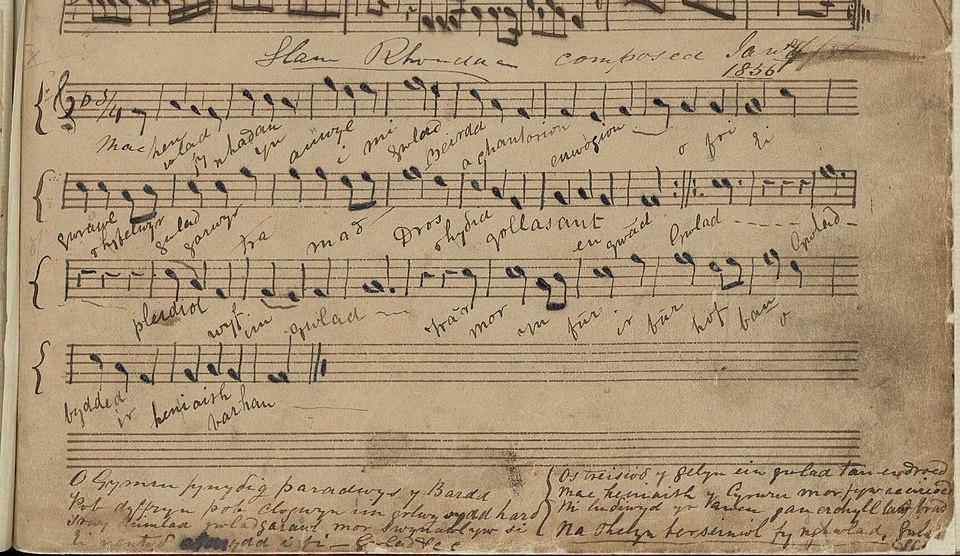 Glan Rhondda composed Jany
1856
Mae hen wlad fy nhadau yn anwyl i mi gwlad Beirdd a chantorion enwogion o fri Ei
gwrawl rhyfelwyr gwlad garwyr tra mad Dros rhydid gollasant eu gwâd Gwlad Gwlad
pleidiol wyf im gwlad tra mor yn fur ir bur hof bau o
bydded ir heniaith barhau
O Gymru fynydig paradwys y Bardd
Pob dyffryn pob clogwyn im golwg sydd hardd
Trwy deimlad gwladgarawl mor swynawl yw si
Ei nentydd afonydd i fi – Gwlad &c &c
Os treisiodd y gelyn ein gwlad tan ei droed
Mae heniaith y Cymru mor fyw ac erioed
Ni ludwyd yr Awen gan erchyll law brad
Na Thelyn berseiniol fy ngwlad, Gwlad